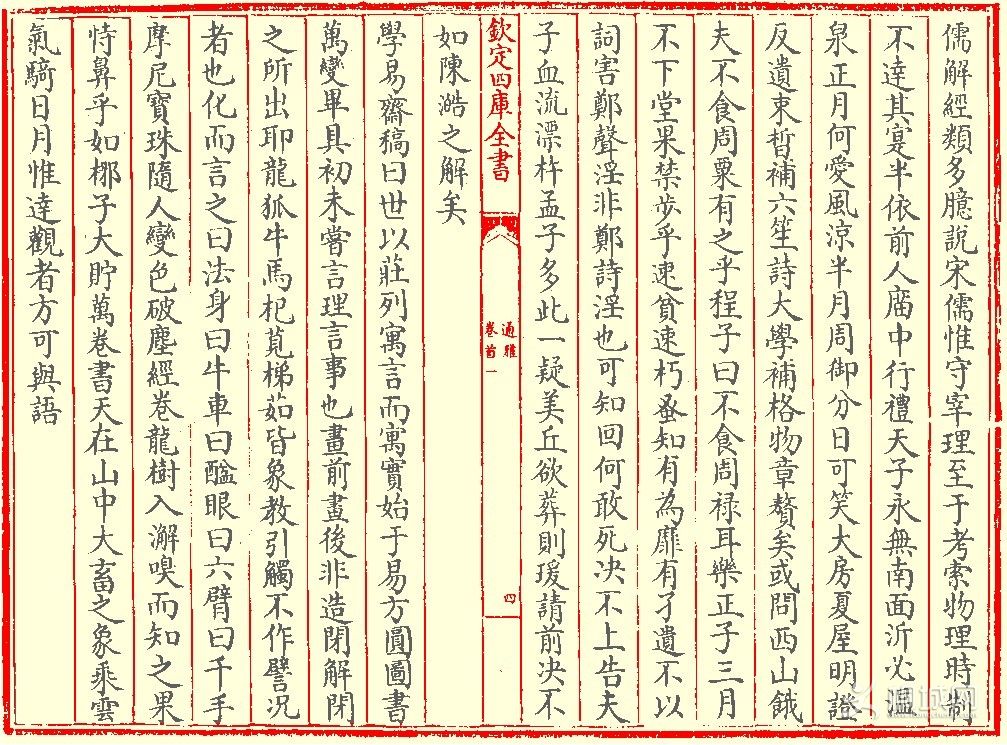 儒解經類多臆說宋儒惟守宰理至于考索物理時制
不達其寔半依前人廟中行禮天子永無南面沂必溫
泉正月何愛風涼半月周御分日可笑大房夏屋明證
反遺束晳補六笙詩大學補格物章贅矣或問西山餓
夫不食周粟有之乎程子曰不食周祿耳樂正子三月
不下堂果禁步乎速貧速朽蚤知有為靡有孑遺不以
詞害鄭聲淫非鄭詩淫也可知回何敢死决不上告夫
子血流漂杵孟子多此一疑美丘欲葬則瑗請前决不
如陳澔之解矣
欽定四庫全書
通雅
卷首一
四
學易齋稿曰世以莊列寓言而寓實始于易方圓圖書
萬變畢具初未嘗言理言事也畫前畫後非造閉解閉
之所出耶龍狐牛馬杞莧梯茹皆象教引觸不作譬況
者也化而言之曰法身曰牛車曰醯眼曰六臂曰千手
摩尼寶珠隨人變色破塵經卷龍樹入澥嗅而知之果
恃鼻乎如梛子大貯萬卷書天在山中大畜之象乘雲
氣騎日月惟達觀者方可與語